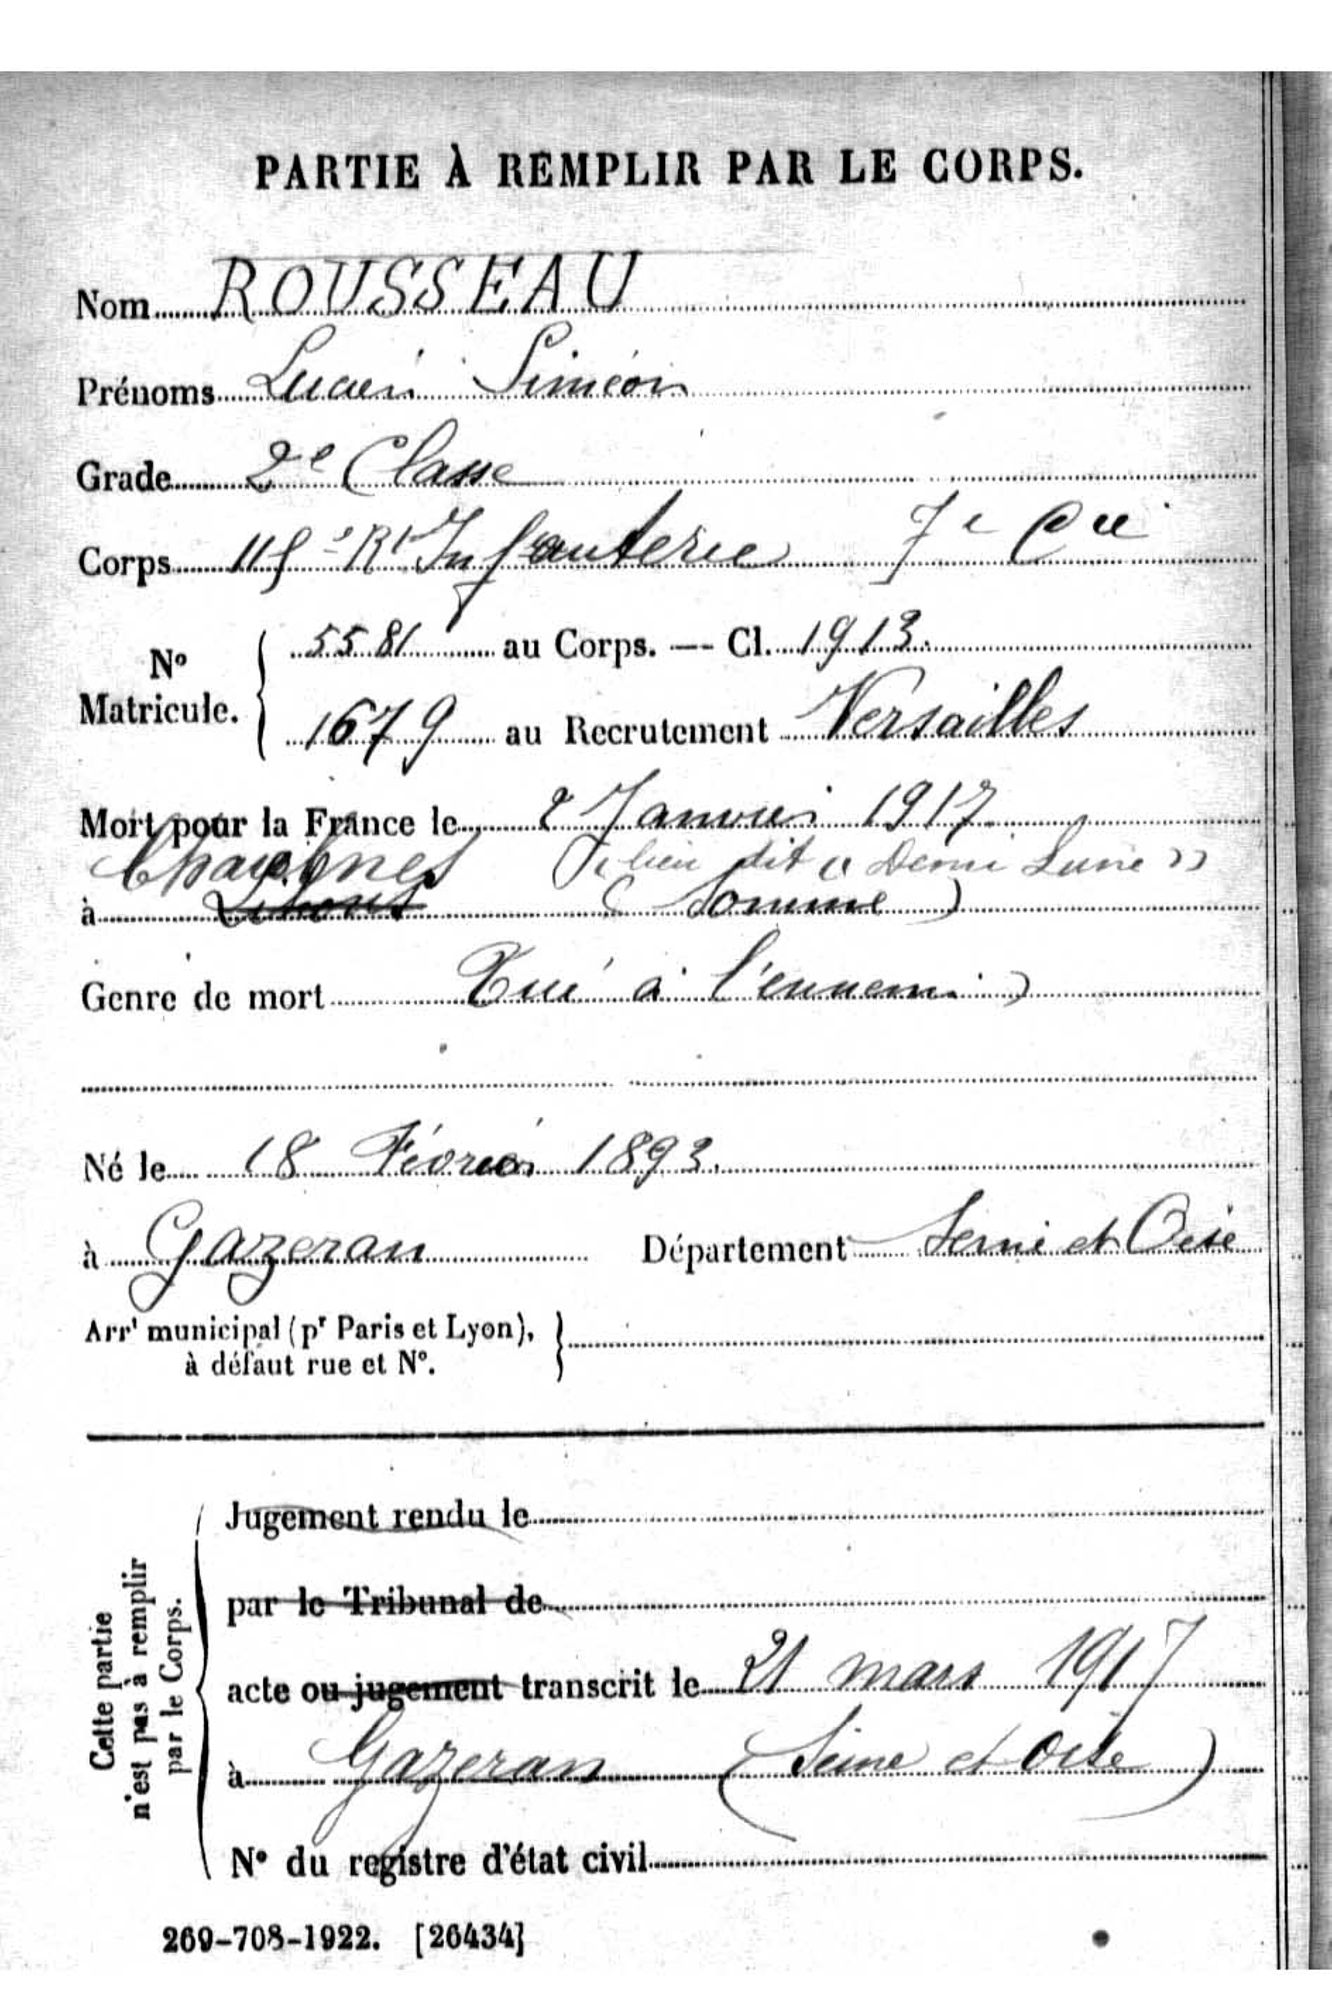 PARTIE À REMPLIR PAR LE CORPS.
Nom ROUSSEAU
Prénoms Lucien Siméon
Grade 2e Classe
Corps Rt Infanterie 7e Cie
No Matricule. 5581 au Corps. — Cl. 1913.
1679 au Recrutement Versailles
Mort pour la France le 2 Janvier 1917
Chaulnes lieu dit « Demi Lune »
à Lihons (Somme)
Genre de mort Tué à l'ennemi
Né le 18 Février 1893.
à Gazeran Département Seine et Oise
Arrt municipal (pr Paris et Lyon),
à défaut rue et No.
Cette partie
n'est pas à remplir
par le Corps.
Jugement rendu le
par le Tribunal de
acte ou jugement transcrit le 21 mars 1917
à Gazeran (Seine et Oise)
No du registre d'état civil
269-708-1922. [26434]